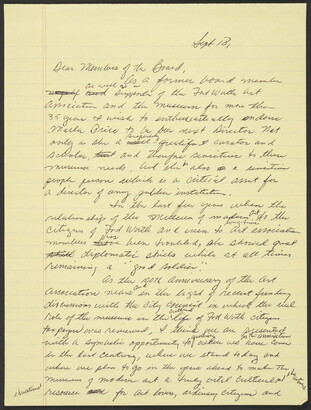 Sept 13,
Dear Members of the Board,
As a former board member
as well as a
supporter of the Fort Worth Art
Association and the Museum for more than
35 years I wish to enthusiastically endorse
Marla Price to be our next Director. Not
only is she a qualified curator and
scholar and therefore sensitive to these
museum needs, but she also is a sensitive
people person which is a critical asset for
a director of any public institution.
In the last few years when the
relationship of the Museum of modern art to the
citizens of Fort Worth and even to Art association
members has been troubled, she showed great
diplomatic skills while at all times
remaining a "good soldier".
As the 100th anniversary of the Art
Association nears in the light of recent funding
discussions with the City Council in which the vital
role of the museum in the cultural life of Fort Worth citizen
taxpayers was reviewed, I think we are presented
with a symbolic opportunity to review where we have come
in the last century, where we stand today and
where we plan to go in the years ahead to make the
Museum of modern art a truly vital cultural
educational
resource for art lovers, ordinary citizens and